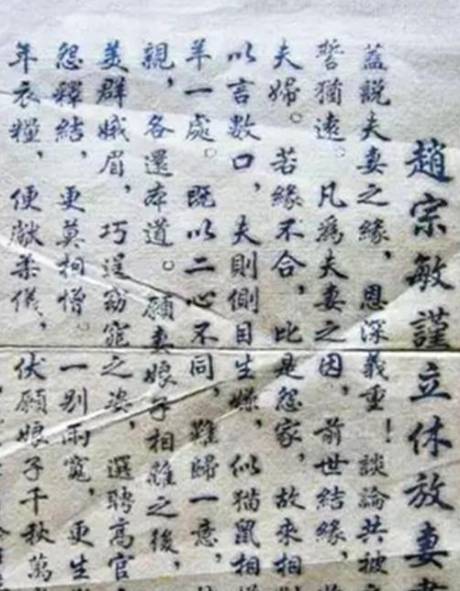 趙宗敏謹立休放妻
蓋説夫妻之緣，恩深義重！談論共被
誓猶遠。凡爲夫妻之因，前世結緣，
夫婦。若緣不合，比是怨家，故來相
以言數口，夫則側目生嫌，似猫鼠相
羊一處。既以二心不同，難歸一意，
親，各還本道。願妻娘子相離之後，
美群娥眉，巧逞窈窕之姿，選聘高官
怨釋結，更莫相憎。一别兩寬，更生
年衣糧，便獻柔儀，伏願娘子千秋萬